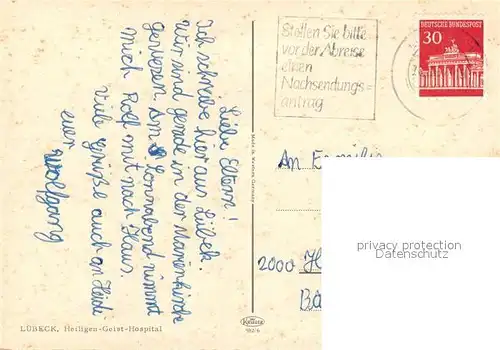 Liebe Eltern!
Ich schreibe hier aus Lübeck.
Wir sind gerade in der Marienkirche
gewesen. Am Sonnabend nimmt
mich Rolf mit nach Haus.
Viele Grüße auch an Heidi
euer Wolfgang
LÜBECK, Heiligen-Geist-Hospital
Made in Western Germany
Stellen Sie bitte
vor der Abreise
einen
Nachsendungs=
antrag
DEUTSCHE BUNDESPOST
30
An Familie
2000 H
privacy protection
Datenschutz